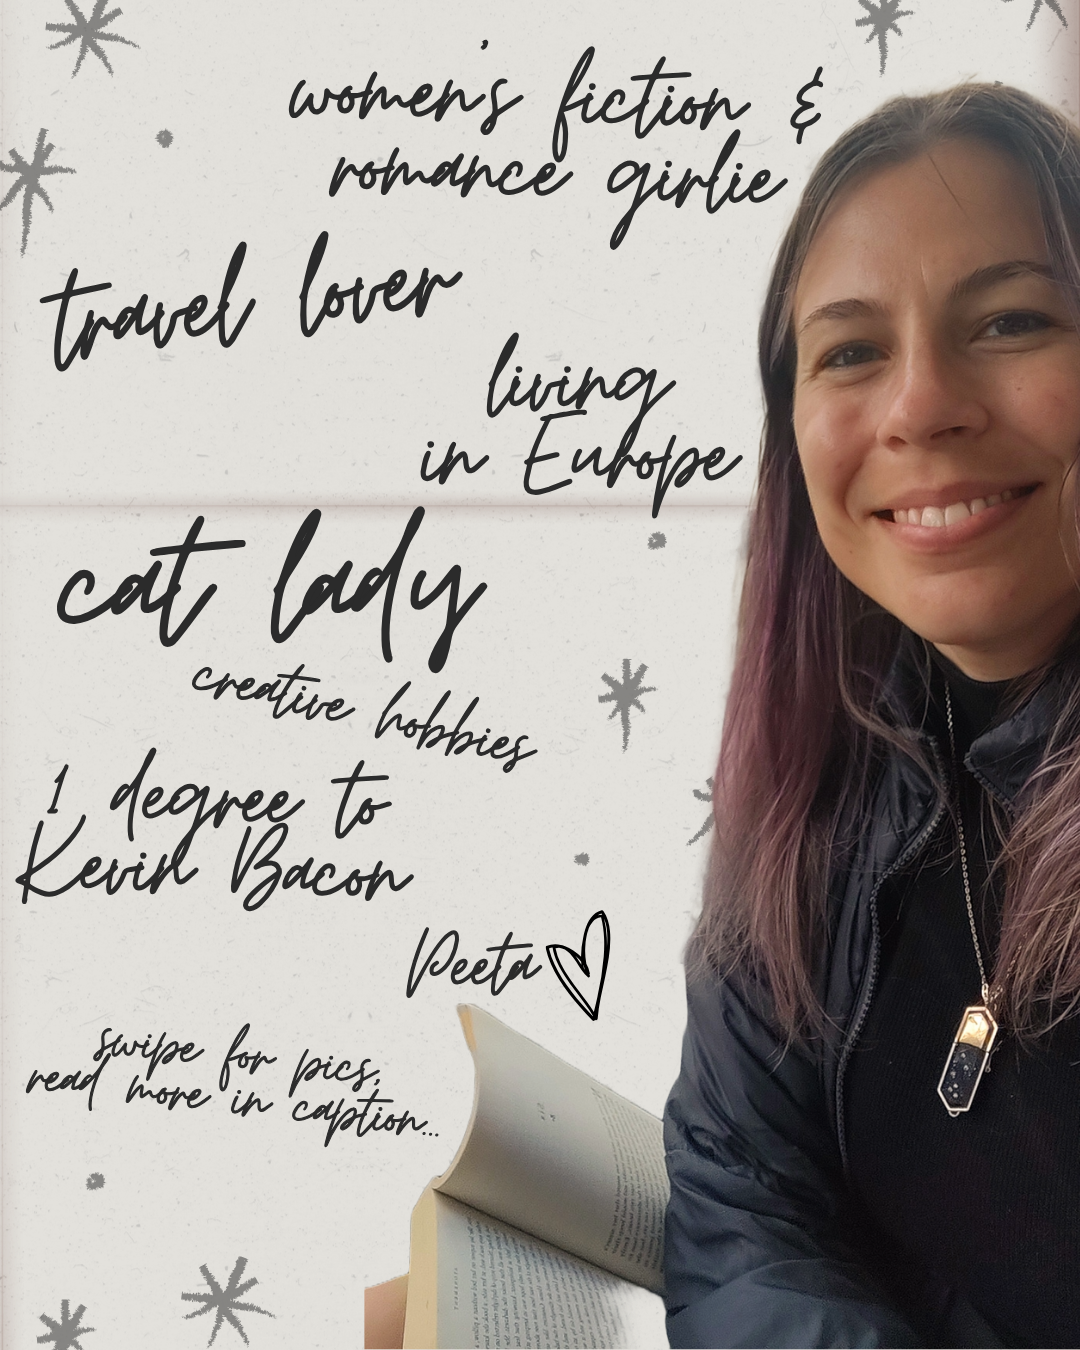 women's fiction &
romance girlie
travel lover
living
in Europe
cat lady
creative hobbies
1 degree to
Kevin Bacon
Peeta
swipe for pics,
read more in caption...